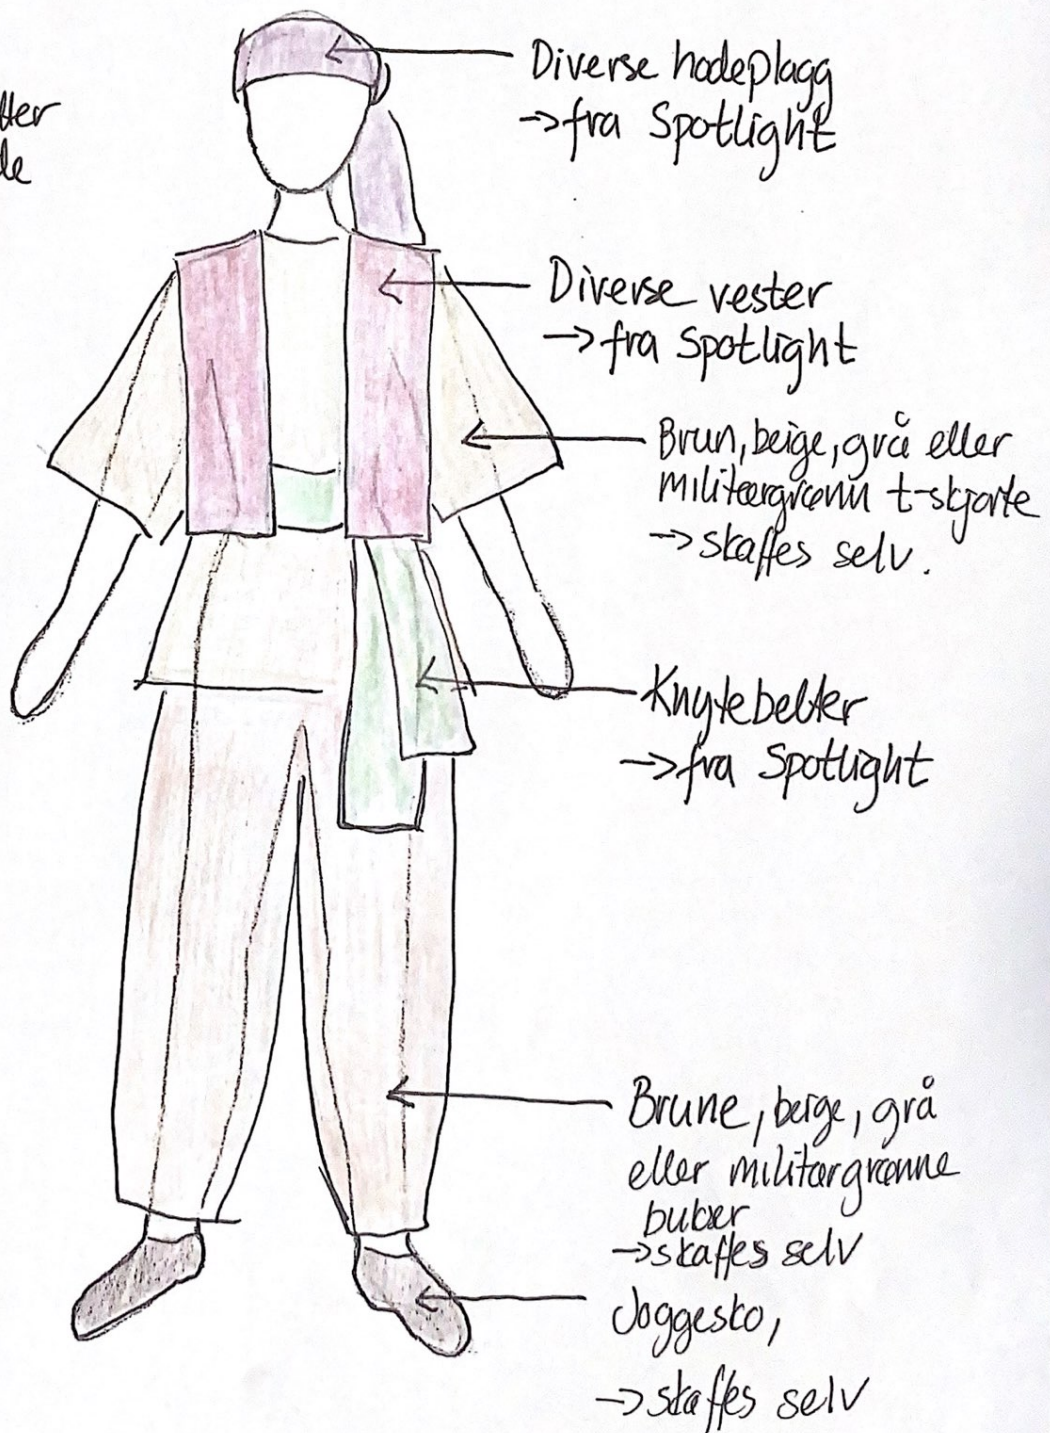 Diverse hodeplagg
->fra Spotlight
Diverse vester
->fra Spotlight
Brun, beige, grå eller
militærgrønn t-skjorte
->skaffes selv.
Knytebelter
->fra Spotlight
Brune, beige, grå
eller militærgrønne
bukser
->skaffes selv
Joggesko,
->skaffes selv